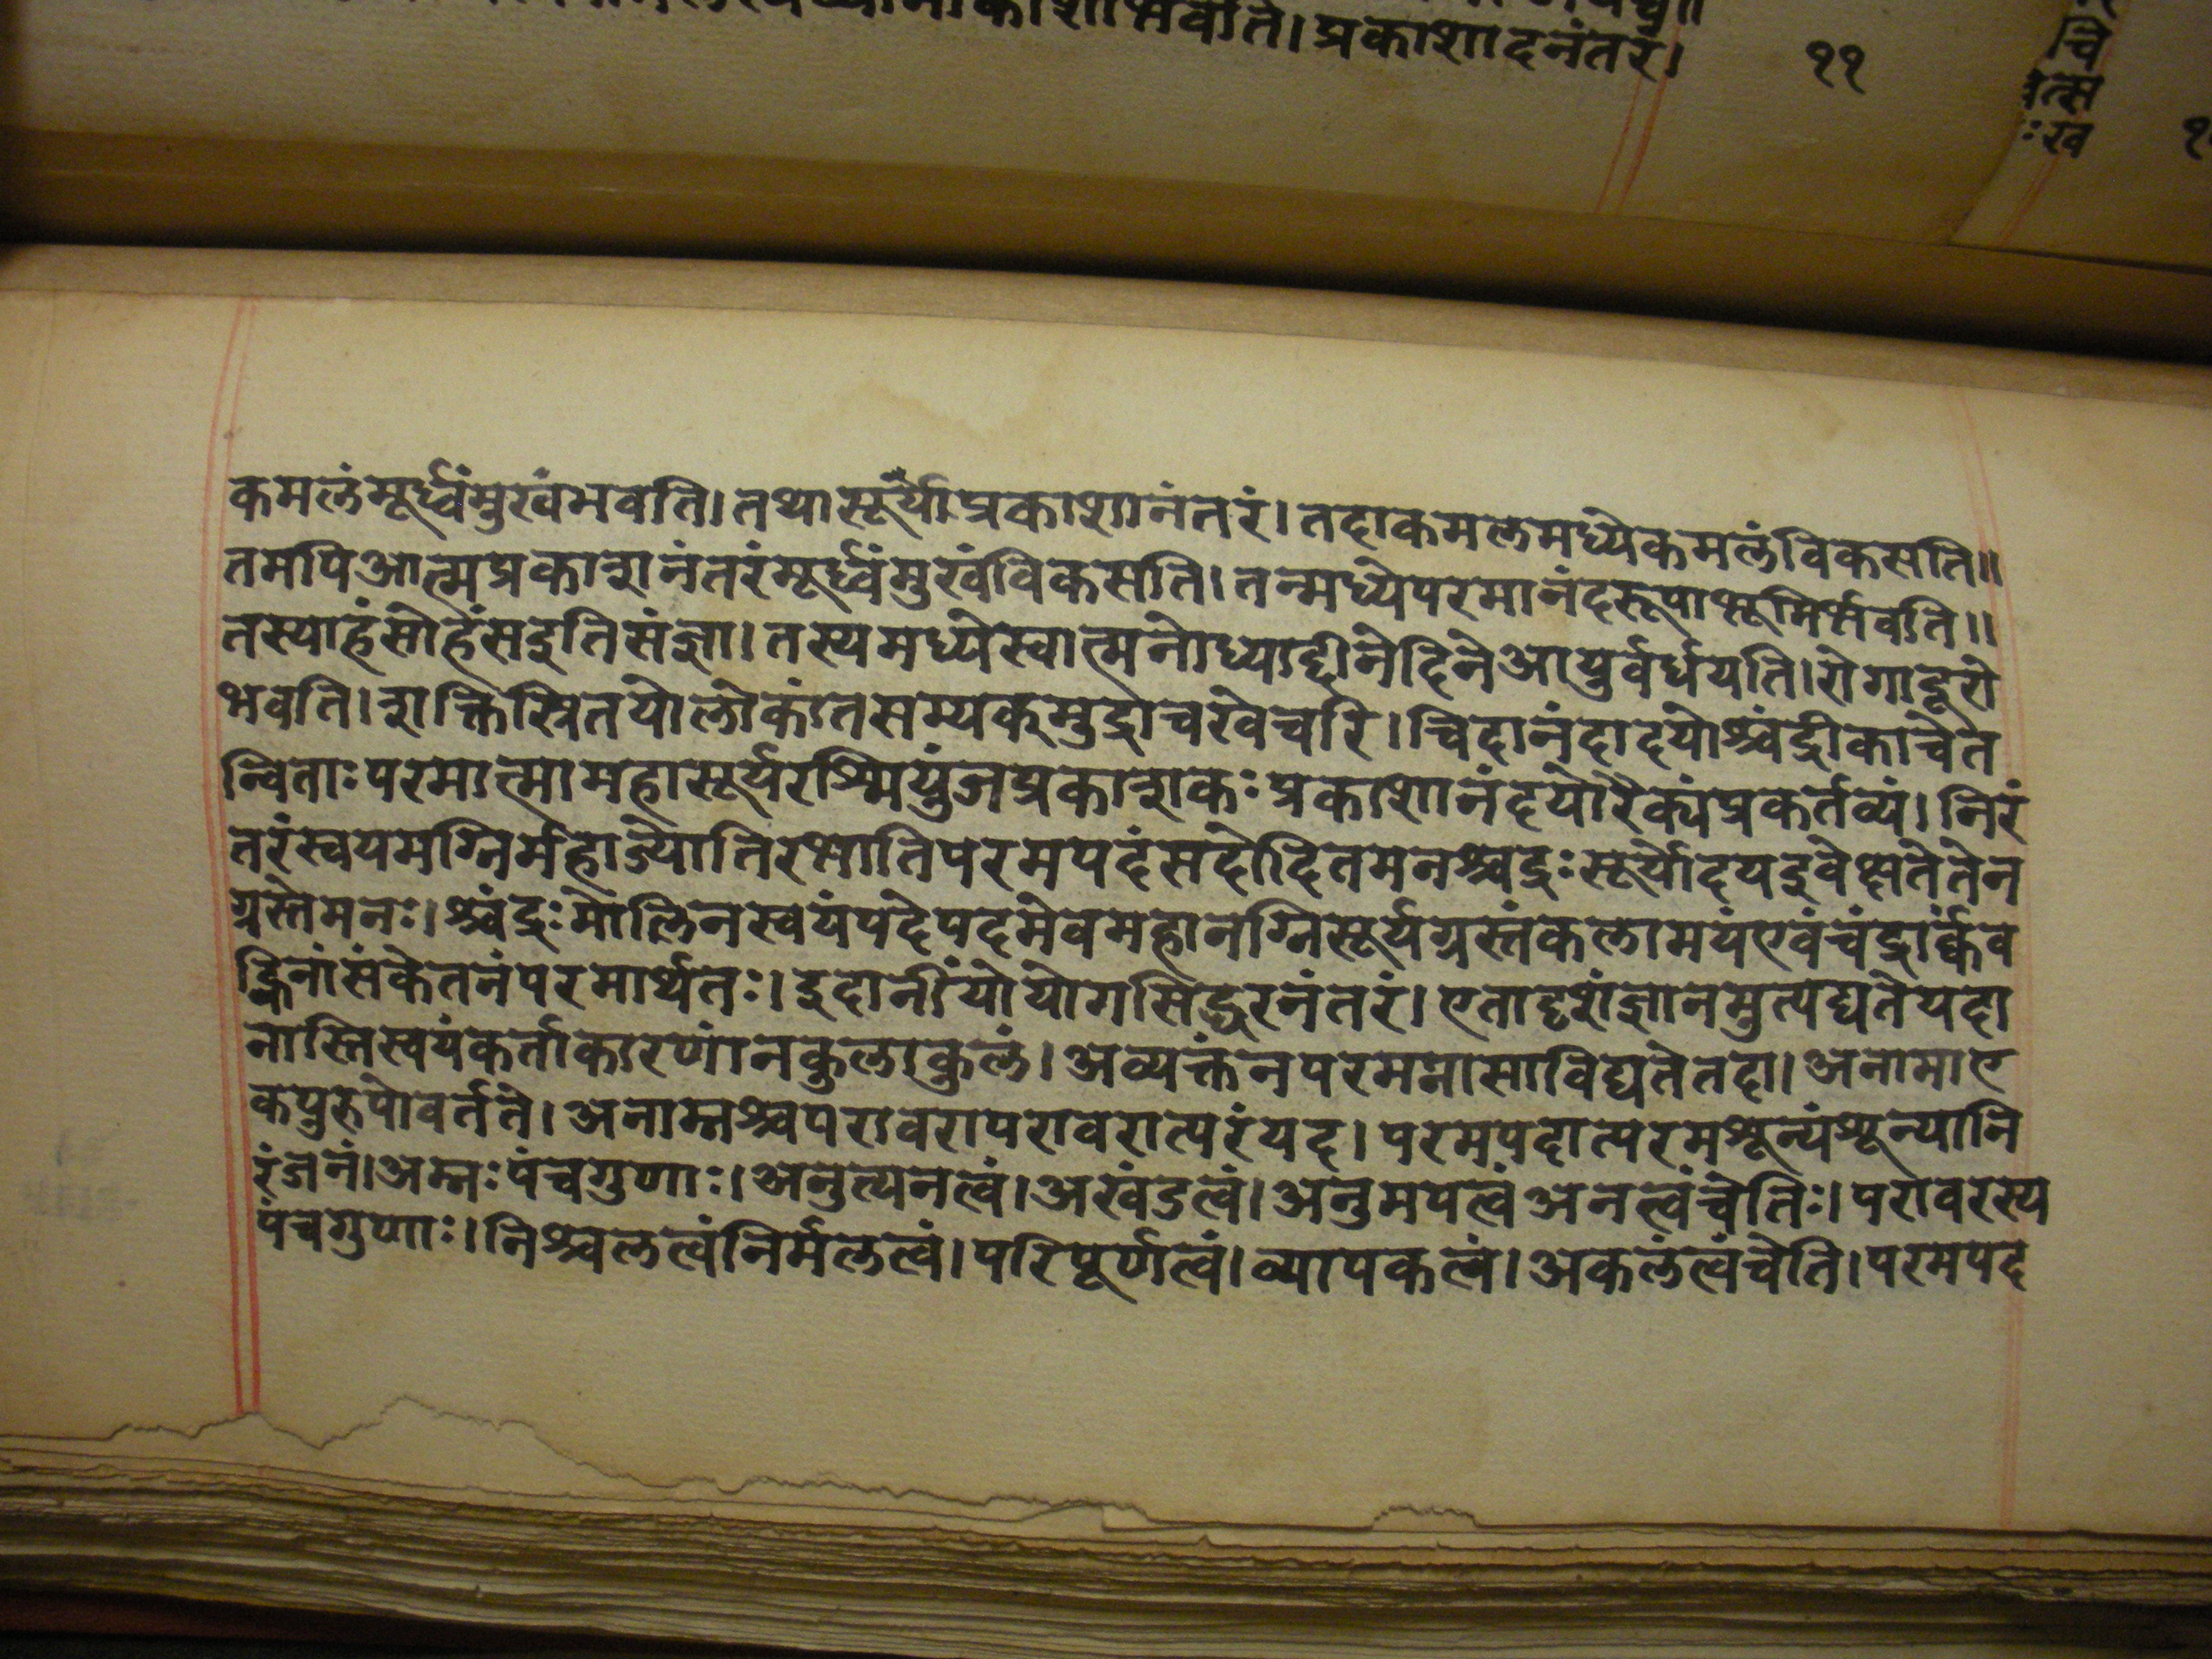 भवति। प्रकाशादनंतरं। ११
कमलंमूर्ध्वंमुखंभवति। तथासूर्याप्रकाशानंतरं। तदाकमलमध्येकमलंविकसति॥
तमपिआत्मप्रकाशानंतरंमूर्ध्वंमुखंविकसति। तन्मध्येपरमानंदरूपाभूमिर्भवति॥
तस्याहंसोहंसइतिसंज्ञा। तस्यमध्येस्वात्मनोध्याद्दीनेदिनेआयुर्वर्धयति। रोगाद्दूरो
भवति। शक्तिस्त्रितयोलोकांतसम्यक्मुद्राचखेचरि। चिदानंदादयोश्चंद्रीकाचेत
न्विताः परमात्मामहासूर्यरश्मिपुंजप्रकाशकः प्रकाशानंदयोरैक्यंप्रकर्तव्यं। निरं
तरंस्वयमग्निर्महाज्योतिरभातिपरमपदंसदोदितमनश्चद्रः सूर्योदयइवेक्षतेतेन
ग्रस्तेमनः। श्चंद्रः मालिनस्वयंपदेपदमेवमहानग्निसूर्यग्रस्तंकलामयंएवंचंद्रार्कव
ह्निनांसंकेतनंपरमार्थतः। इदानींयोयोगसिद्धरनंतरं। एतादृशंज्ञानमुत्पद्यतेयदा
नास्तिस्वयंकर्ताकारणंनकुलाकुलं। अव्यक्तंनपरमन्नासाविद्यतेतदा। अनामाए
कपुरुषोवर्तते। अनाम्नश्चपरावरापरावरात्परंयद। परमपदात्परमशून्यंशून्यानि
रंजनं। अम्नः पंचगुणाः। अनुत्पनत्वं। अखंडत्वं। अनुमपत्वंअनत्वंचेतिः। परावरस्य
पंचगुणाः। निश्चलत्वंनिर्मलत्वं। परिपूर्णत्वं। व्यापकत्वं। अकलंत्वंचेति। परमपद